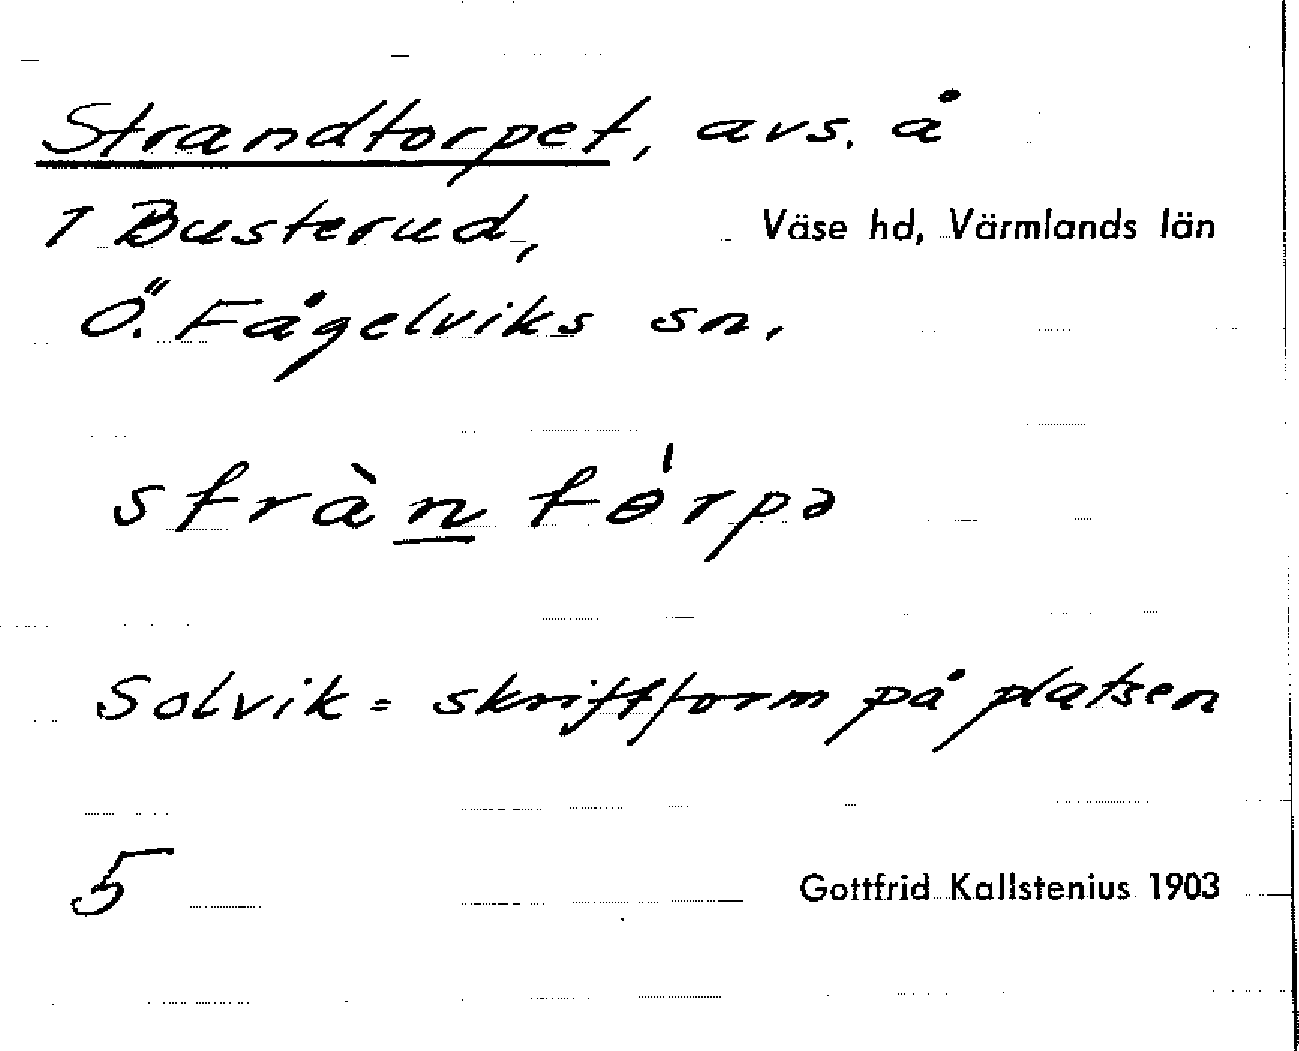 Strandtorpet, avs. å
1 Busterud,
Väse hd, Värmlands län
Ö. Fågelviks sn,
stràn tɵ́rpə
Solvik = skriftform på platsen
5
Gottfrid Kallstenius 1903